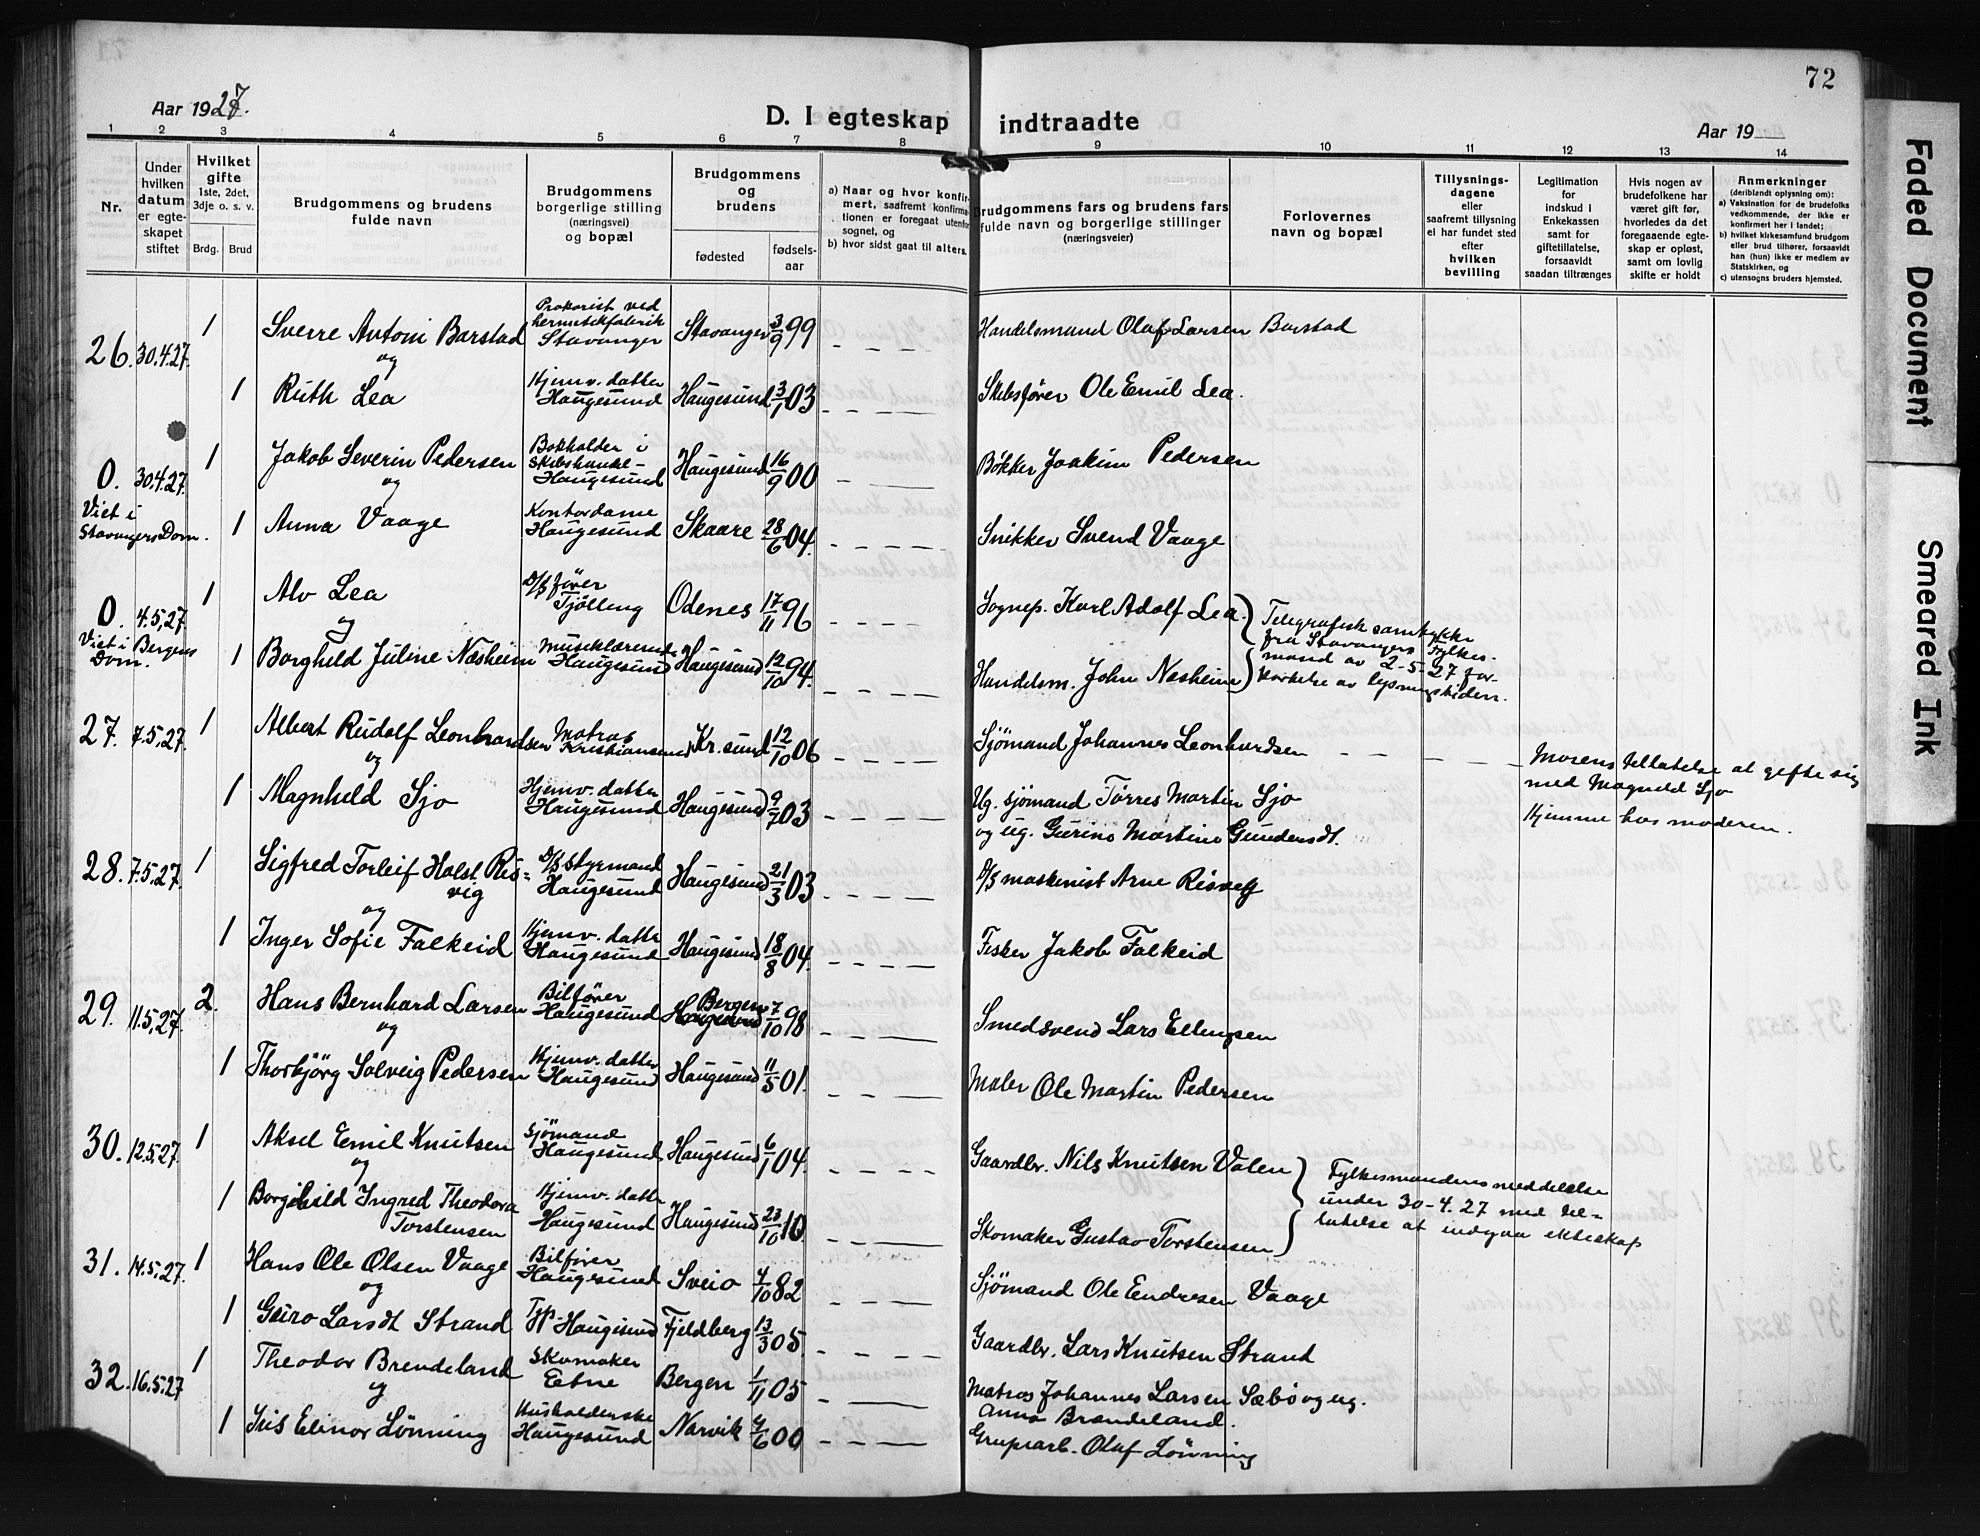 72
Aar 1927.
D. I egteskap indtraadte
Aar 19
1 2 3 4 5 6 7 8 9 10 11 12 13 14
Nr.
Under hvilken datum er egteskapet stiftet
Hvilket gifte
1ste, 2det, 3dje o. s. v.
Brdg. Brud
Brudgommens og brudens
fulde navn
Brudgommens
borgerlige stilling
(næringsvei)
og bopæl
Brudgommens
og
brudens
fødested
fødsels-
aar
a) Naar og hvor konfir-
mert, saafremt konfirma-
tionen er foregaat utenfor
sognet, og
b) hvor sidst gaat til alters.
Brudgommens fars og brudens fars
fulde navn og borgerlige stillinger
(næringsveier)
Forlovernes
navn og bopæl
Tillysnings-
dagene
eller
saafremt tillysning
ei har fundet sted
efter
hvilken
bevilling
Legitimation
for
indskud i
Enkekassen
samt for
giftetillatelse,
forsaavidt
saadan tiltrænges
Hvis nogen av
brudefolkene har
været gift før,
hvorledes da det
foregaaende egte-
skap er opløst,
samt om lovlig
skifte er holdt
Anmerkninger
(deriblandt oplysning om):
a) Vaksination for de brudefolks
vedkommende, der ikke er
konfirmert her i landet;
b) hvilket kirkesamfund brudgom
eller brud tilhører, forsaavidt
han (hun) ikke er medlem av
Statskirken, og
c) utensogns bruders hjemsted.
26. 30.4.27. 1 Sverre Antoni Barstad Prokurist ved hermetikfabrik Stavanger Stavanger 3/9 99 Handelsmand Olaf Larsen Barstad
og
1 Ruth Lea Hjemv. datter Haugesund Haugesund 3/1 03 Skibsfører Ole Emil Lea.
0. 30.4.27. 1 Jakob Severin Pedersen Bokholder i Skibshandel- Haugesund Haugesund 16/9 00 Bøkker Joakim Pedersen
og
Viet i Stavangers Dom. 1 Anna Vaage Kontordame Haugesund Skaare 28/6 04. Snikker Svend Vaage
0. 4.5.27 1 Alv Lea D/S fører Tjölling Odenes 17/11 96 Sognep. Karl Adolf Lea
og
Viet i Bergens Dom. 1 Borghild Juline Næsheim Musiklærerinde Haugesund Haugesund 12/10 94. Handelsm. John Næsheim
Telegrafisk samtykke
fra Stavangers Fylkes-
mand av 2-5-27 for-
kortelse av lysningstiden.
27. 7.5.27. 1 Albert Rudolf Leonhardsen Matros Kristiansund Kr.sund 12/10 06 Sjömand Johannes Leonhardsen
og
1 Magnhild Sjo Hjemv. datter Haugesund Haugesund 9/7 03 Ug. sjömand Törres Martin Sjo
og ug. Gurine Martine Gundersdt.
Morens tillatelse at gifte sig
med Magnild Sjo
Hjemme hos moderen.
28. 7.5.27. 1 Sigfred Torleif Holst Ris-vig D/S styrmand Haugesund Haugesund 21/3 03 D/S maskinist Arne Risvig
og
1 Inger Sofie Falkeid Hjemv. datter Haugesund Haugesund 18/8 04. Fisker Jakob Falkeid
29. 11.5.27. 2. Hans Bernhard Larsen Bilfører Haugesund Bergen 7/10 98 Smedsvend Lars Ellingsen
og
1 Thorbjörg Solveig Pedersen Hjemv. datter Haugesund Haugesund 11/5 01. Maler Ole Martin Pedersen
30. 12.5.27. 1 Aksel Emil Knutsen Sjömand Haugesund Haugesund 6/1 04. Gaardbr. Nils Knutsen Valen
og
1 Borghild Ingred Theodora Torstensen Hjemv. datter Haugesund Haugesund 23/10 10. Skomaker Gustav Torstensen
Fylkesmandens meddelelse
under 30-4.27 med til-
latelse at indgaa ekteskap
31. 14.5.27. 1 Hans Ole Olsen Vaage Bilfører Haugesund Sveio 4/10 82 Sjömand Ole Endresen Vaage
og
1 Guro Larsdt Strand Haugesund Fjeldberg 13/3 05. Gaardbr. Lars Knutsen Strand
32. 16.5.27 1 Theodor Brendeland Skomaker Etne Bergen 1/11 05 Matros Johannes Larsen Sæbö og ug.
Anna Brendeland.
og
1 Iris Elinor Lönning Husholderske Haugesund Narvik 4/6 00 Grupearb. Olaf Lönning
Faded Document
Smeared Ink